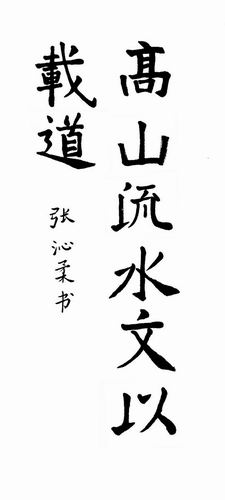 髙山流水文以
載道
张沁柔书